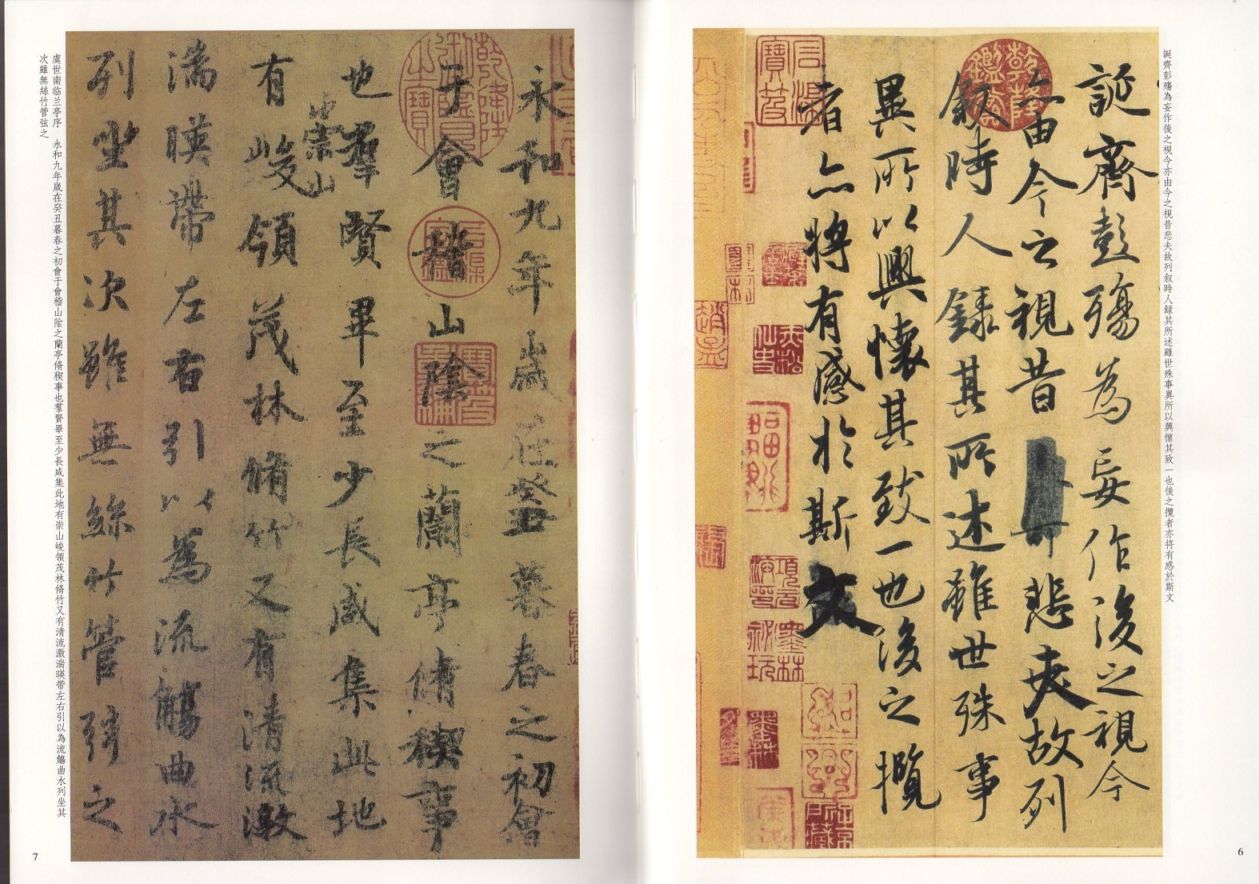 誕齊彭殤為妄作後之視今亦由今之視昔悲夫故列叙時人録其所述雖世殊事異所以興懷其致一也後之攬者亦将有感於斯文
誕齊彭殤為妄作後之視今
亦由今之視昔悲夫故列
叙時人録其所述雖世殊事
異所以興懷其致一也後之攬
者亦將有感於斯文
乾隆鑑賞
6
永和九年歲在癸丑暮春之初會
于會稽山陰之蘭亭脩稧事
也羣賢畢至少長咸集此地
崇山
有峻領茂林脩竹又有清流激
湍暎帶左右引以為流觴曲水
列坐其次雖無絲竹管弦之
虞世南临兰亭序 永和九年歲在癸丑暮春之初會于會稽山陰之蘭亭脩稧事也羣賢畢至少長咸集此地有崇山峻領茂林脩竹又有清流激湍暎帶左右引以為流觴曲水列坐其
次雖無絲竹管弦之
7